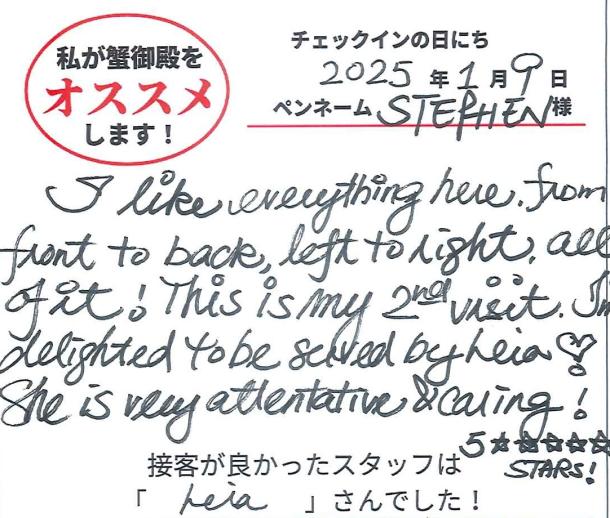 私が蟹御殿を
オススメ
します！
チェックインの日にち
2025 年 1 月 9 日
ペンネーム STEPHEN 様
I like everything here. from
front to back, left to right, all
of it! This is my 2nd visit. I'm
delighted to be served by Leia ♡
She is very attentative & caring!
5 ☆☆☆☆☆
STARS!
接客が良かったスタッフは
「 Leia 」さんでした！